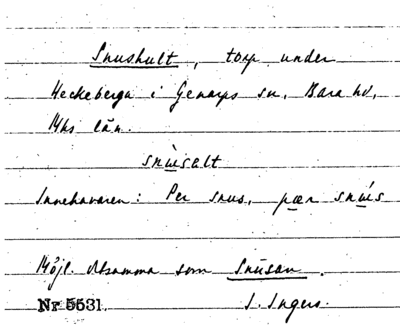 Snushult, torp under
Heckeberga i Genarps sn, Bara hd,
Mhs län.
snùsalt
Innehavaren: Per snus, pær snùs
Möjl. detsamma som Snúsan.
Nr 5531. I. Ingers.